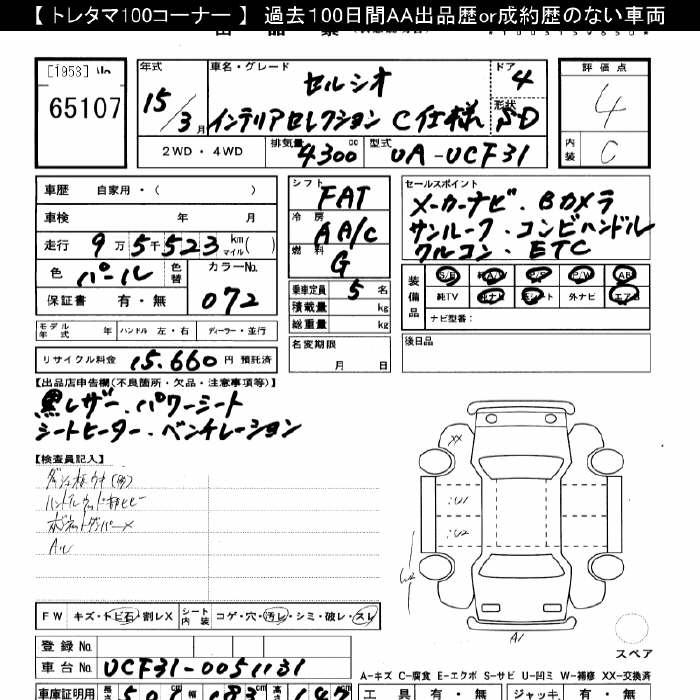 【 トレタマ100コーナー 】 過去100日間AA出品歴or成約歴のない車両
65107
年式 15/3月
車名・グレード セルシオ
インテリアセレクション C仕様
ドア 4
形状 SD
評価点 4
内装 C
2WD・4WD
排気量 4300 cc
型式 UA-UCF31
車歴 自家用・( )
車検 年 月
走行 9万5千523 km マイル( )
色 パール
色替
カラーNo. 072
保証書 有・無
モデル年式 年 ハンドル 左・右 ディーラー・並行
リサイクル料金 15,660 円 預託済
シフト FAT
冷房 AA/C
燃料 G
乗車定員 5 名
積載量 kg
総重量 kg
名変期限
月 日
セールスポイント
メーカーナビ・Bカメラ
サンルーフ・コンビハンドル
クルコン・ETC
装備品
S/R 純A/W P/S P/W AB
純TV 純ナビ 革シート 外ナビ エアB
ナビ型番:
後日品
【出品店申告欄(不良箇所・欠品・注意事項等)】
黒レザー・パワーシート
シートヒーター・ベンチレーション
【検査員記入】
ボンネットダンパー×
FW キズ・トビ石・割レX シート内装 コゲ・穴・汚レ・シミ・破レ・スレ
登録No.
車台No. UCF31-0051131
XX
A1
スペア
A-キズ C-腐食 E-エクボ S-サビ U-凹ミ W-補修 XX-交換済
車庫証明用 長さ 501 幅 183 高さ 147
工具 有・無 ジャッキ 有・無